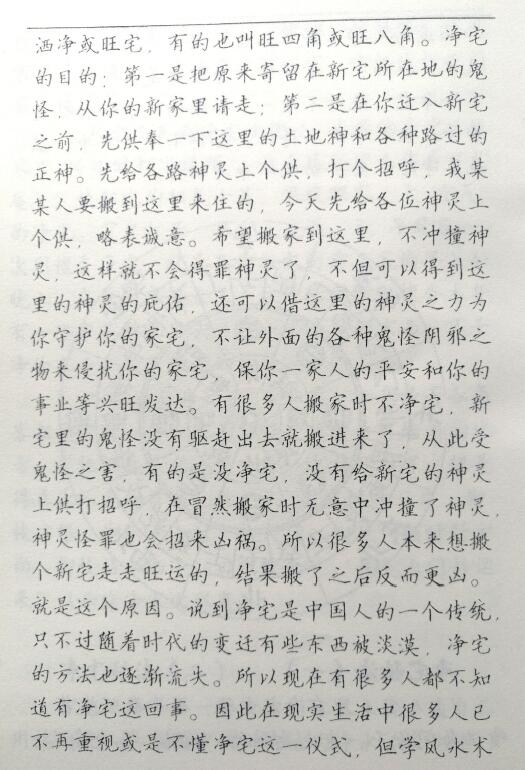 洒净或旺宅，有的也叫旺四角或旺八角。净宅
的目的：第一是把原来寄留在新宅所在地的鬼
怪，从你的新家里请走；第二是在你迁入新宅
之前，先供奉一下这里的土地神和各种路过的
正神。先给各路神灵上个供，打个招呼，我某
某人要搬到这里来住的，今天先给各位神灵上
个供，略表诚意。希望搬家到这里，不冲撞神
灵，这样就不会得罪神灵了，不但可以得到这
里的神灵的庇佑，还可以借这里的神灵之力为
你守护你的家宅，不让外面的各种鬼怪阴邪之
物来侵扰你的家宅，保你一家人的平安和你的
事业等兴旺发达。有很多人搬家时不净宅，新
宅里的鬼怪没有驱赶出去就搬进来了，从此受
鬼怪之害，有的是没净宅，没有给新宅的神灵
上供打招呼，在冒然搬家时无意中冲撞了神灵，
神灵怪罪也会招来凶祸。所以很多人本来想搬
个新宅走走旺运的，结果搬了之后反而更凶。
就是这个原因。说到净宅是中国人的一个传统，
只不过随着时代的变迁有些东西被淡漠，净宅
的方法也逐渐流失。所以现在有很多人都不知
道有净宅这回事。因此在现实生活中很多人已
不再重视或是不懂净宅这一仪式，但学风水术